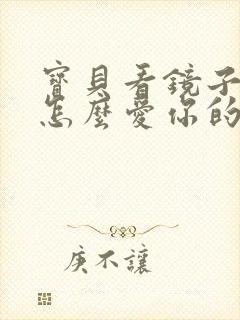 寶貝看鏡子
怎麼愛你的
庚不讓